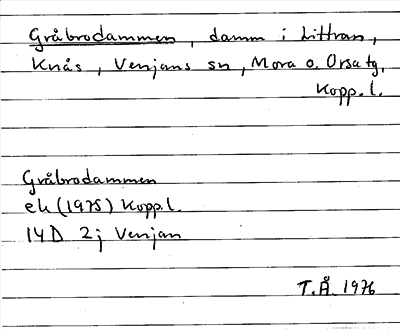 Gråbrodammen, damm i Littran,
Knås, Venjans sn, Mora o. Orsa tg.
Kopp. l.
Gråbrodammen
ek (1975) Kopp. l.
14D 2j Venjan
T.Å. 1976